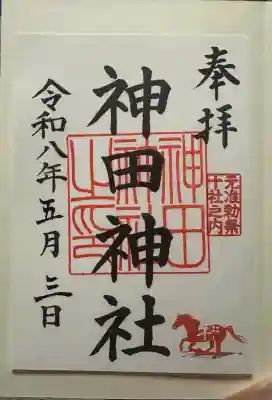 奉拝
元准勅祭
十社之内
神田神社
神田神社之印
令和八年五月三日